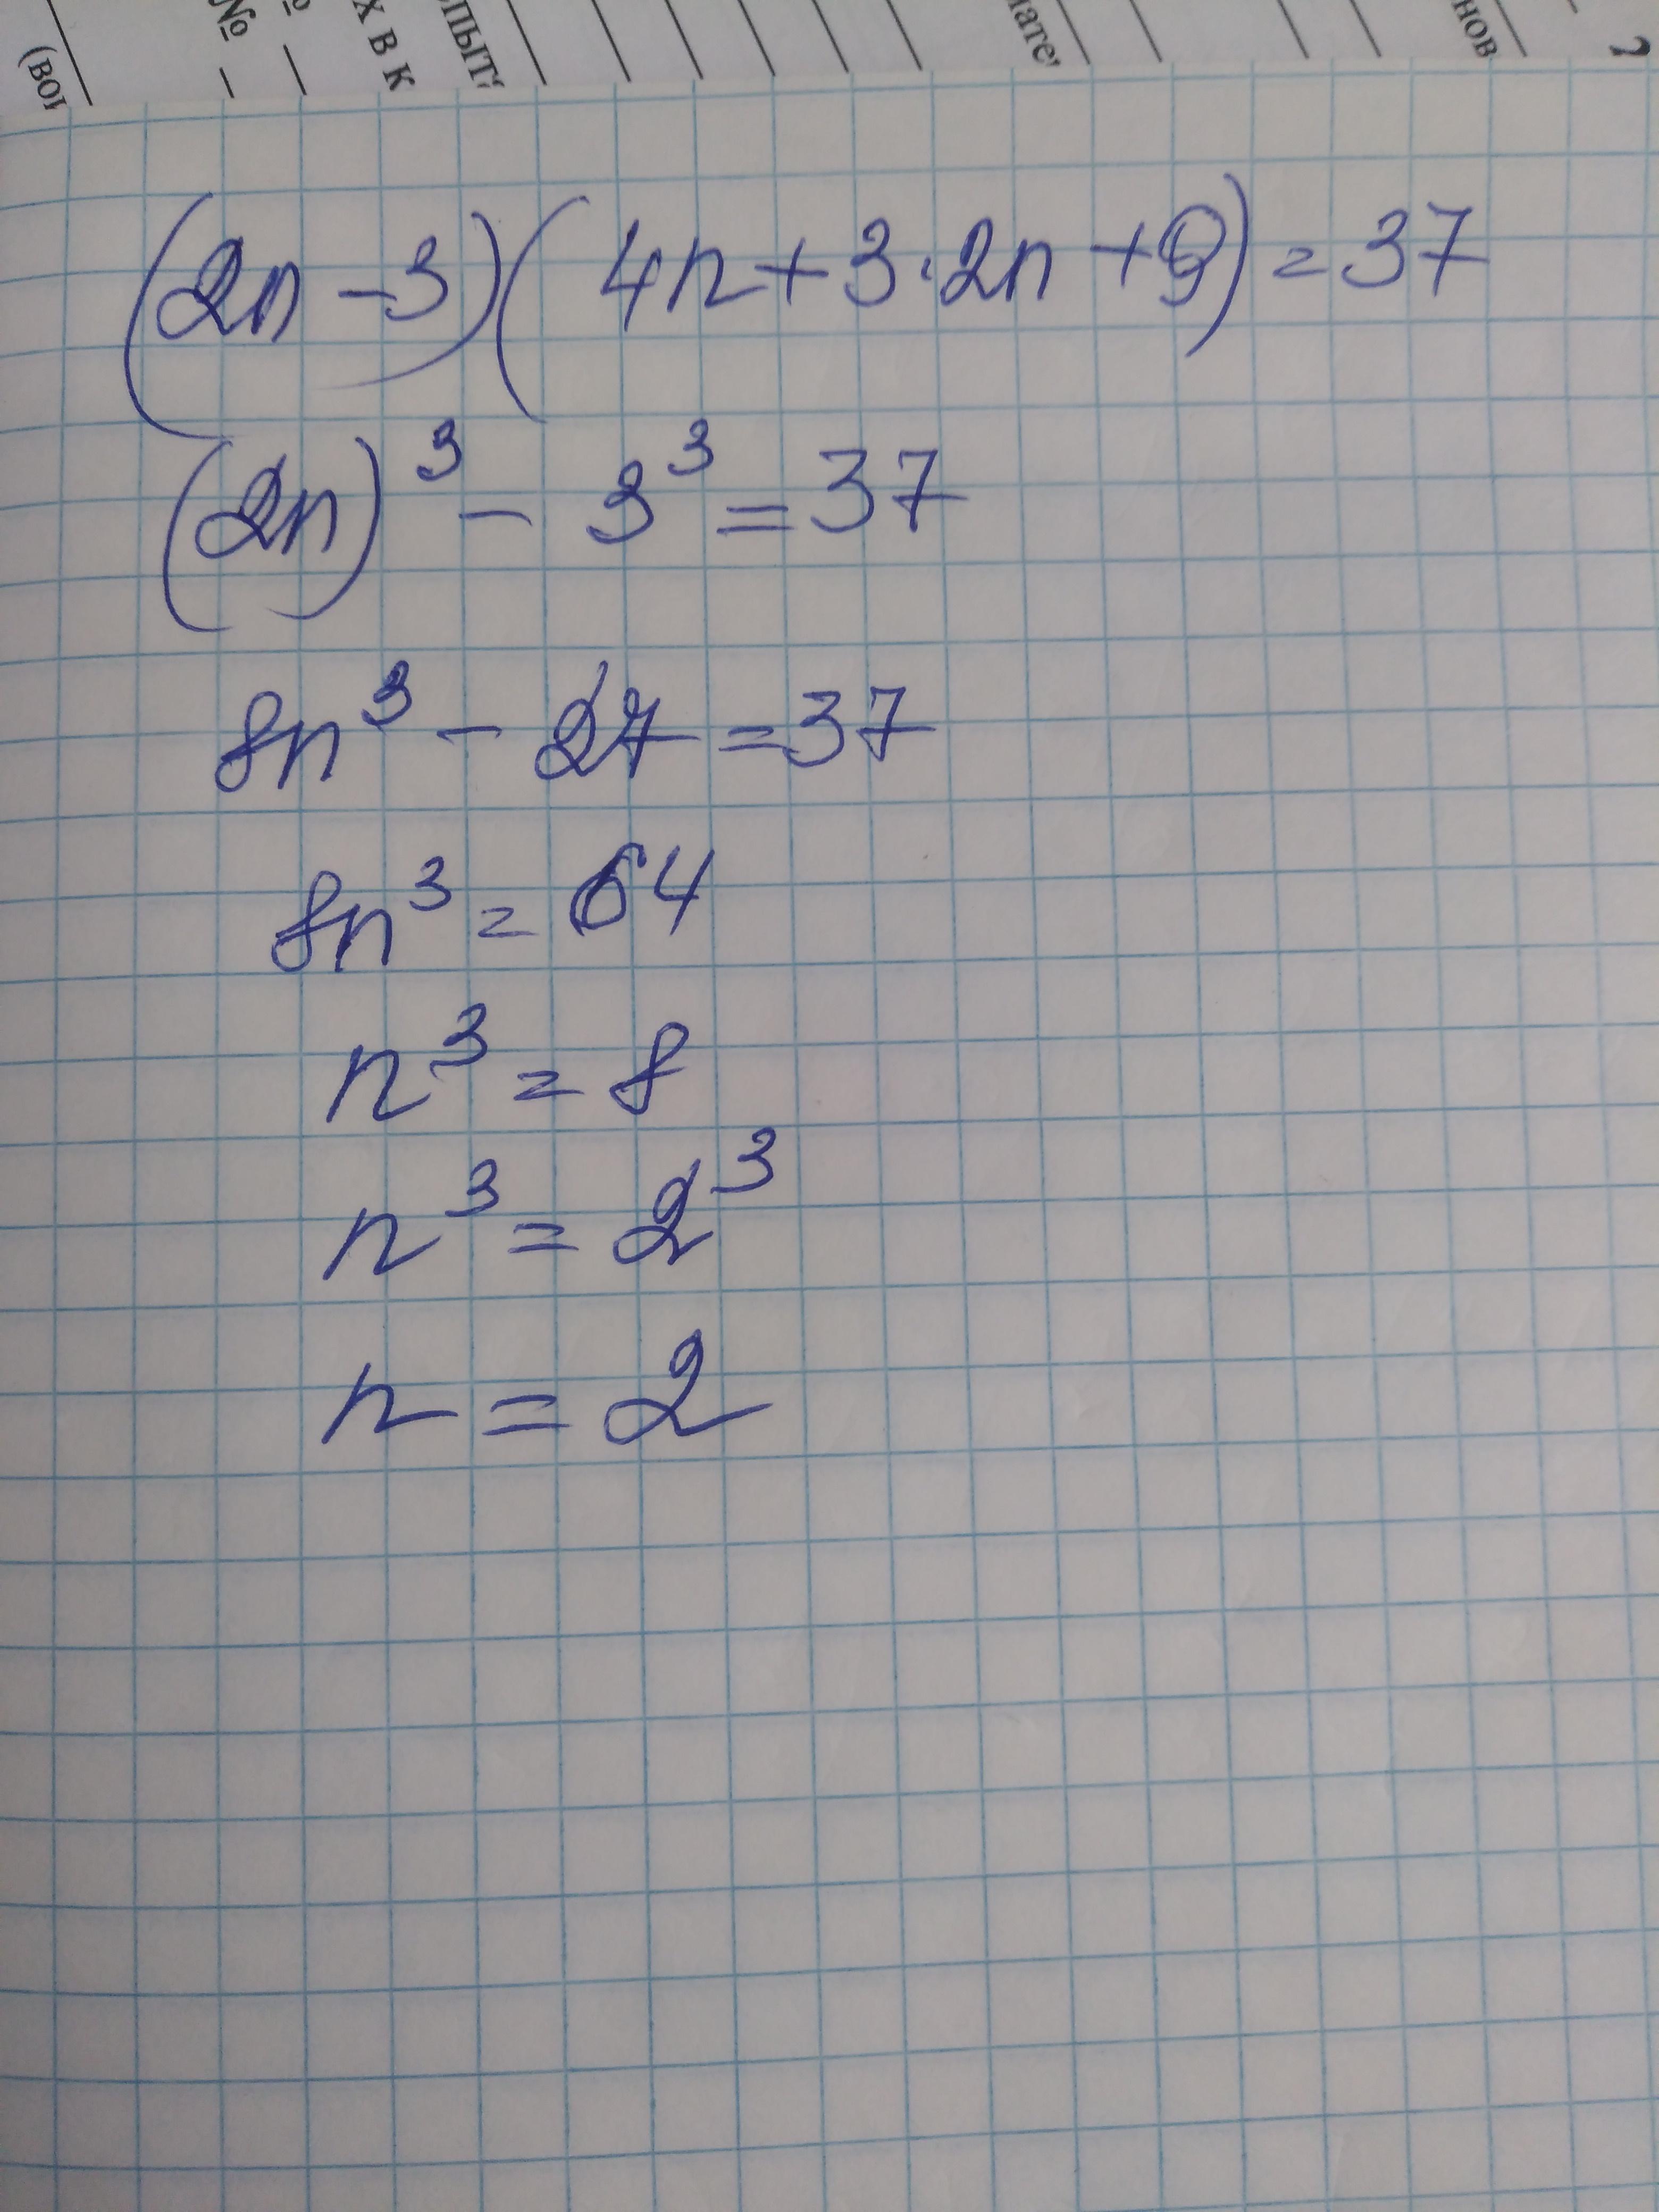 (вои
№
№
х в к
опыт
мате
нов
?
(2n - 3)(4n + 3·2n + 9) = 37
(2n)³ - 3³ = 37
8n³ - 27 = 37
8n³ = 64
n³ = 8
n³ = 2³
n = 2